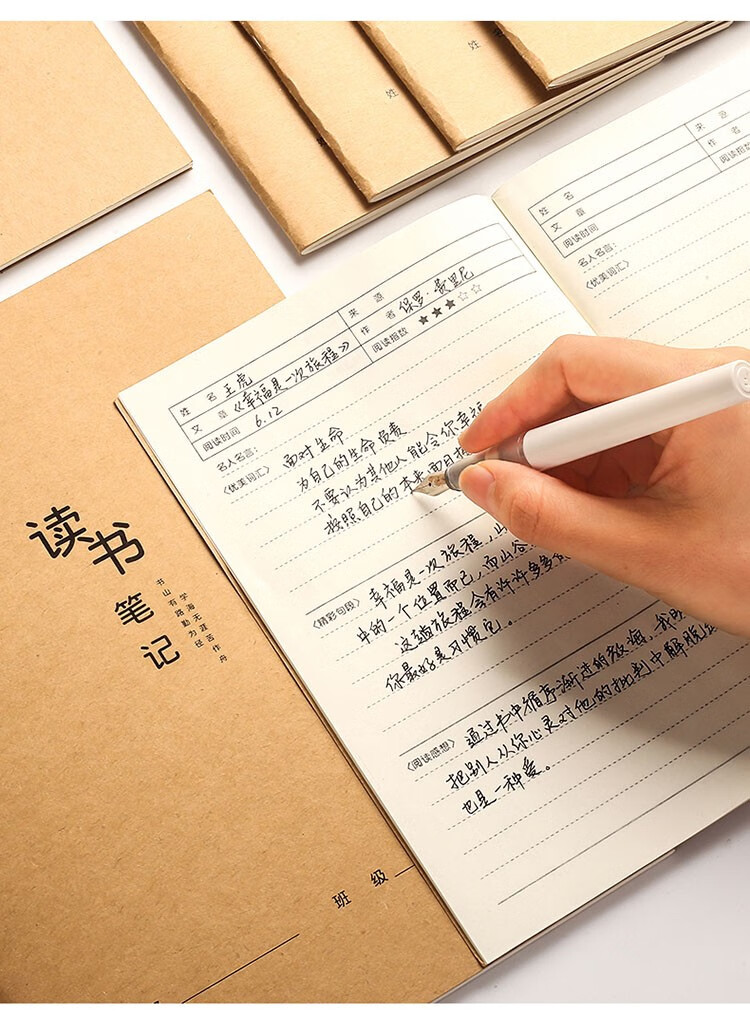 姓
姓
姓
姓 名 王虎
来 源
文 章 《幸福是一次旅程》
作 者 保罗·费里尼
阅读时间 6.12
阅读指数 ★★★☆☆
名人名言:
《优美词汇》 面对生命
为自己的生命负责
不要认为其他人能令你幸福
按照自己的本来面目
《精彩句段》 幸福是一次旅程,
中的一个位置而已,而山谷
这趟旅程会有许许多多
你最好是习惯它。
《阅读感想》 通过书中循序渐进的教海,我
把别人从你心灵对他的批判中解脱
也是一种爱。
姓 名
来 源
文 章
作 者
阅读时间
阅读指数
名人名言:
《优美词汇》
读书
笔记
书山有路勤为径
学海无涯苦作舟
班 级